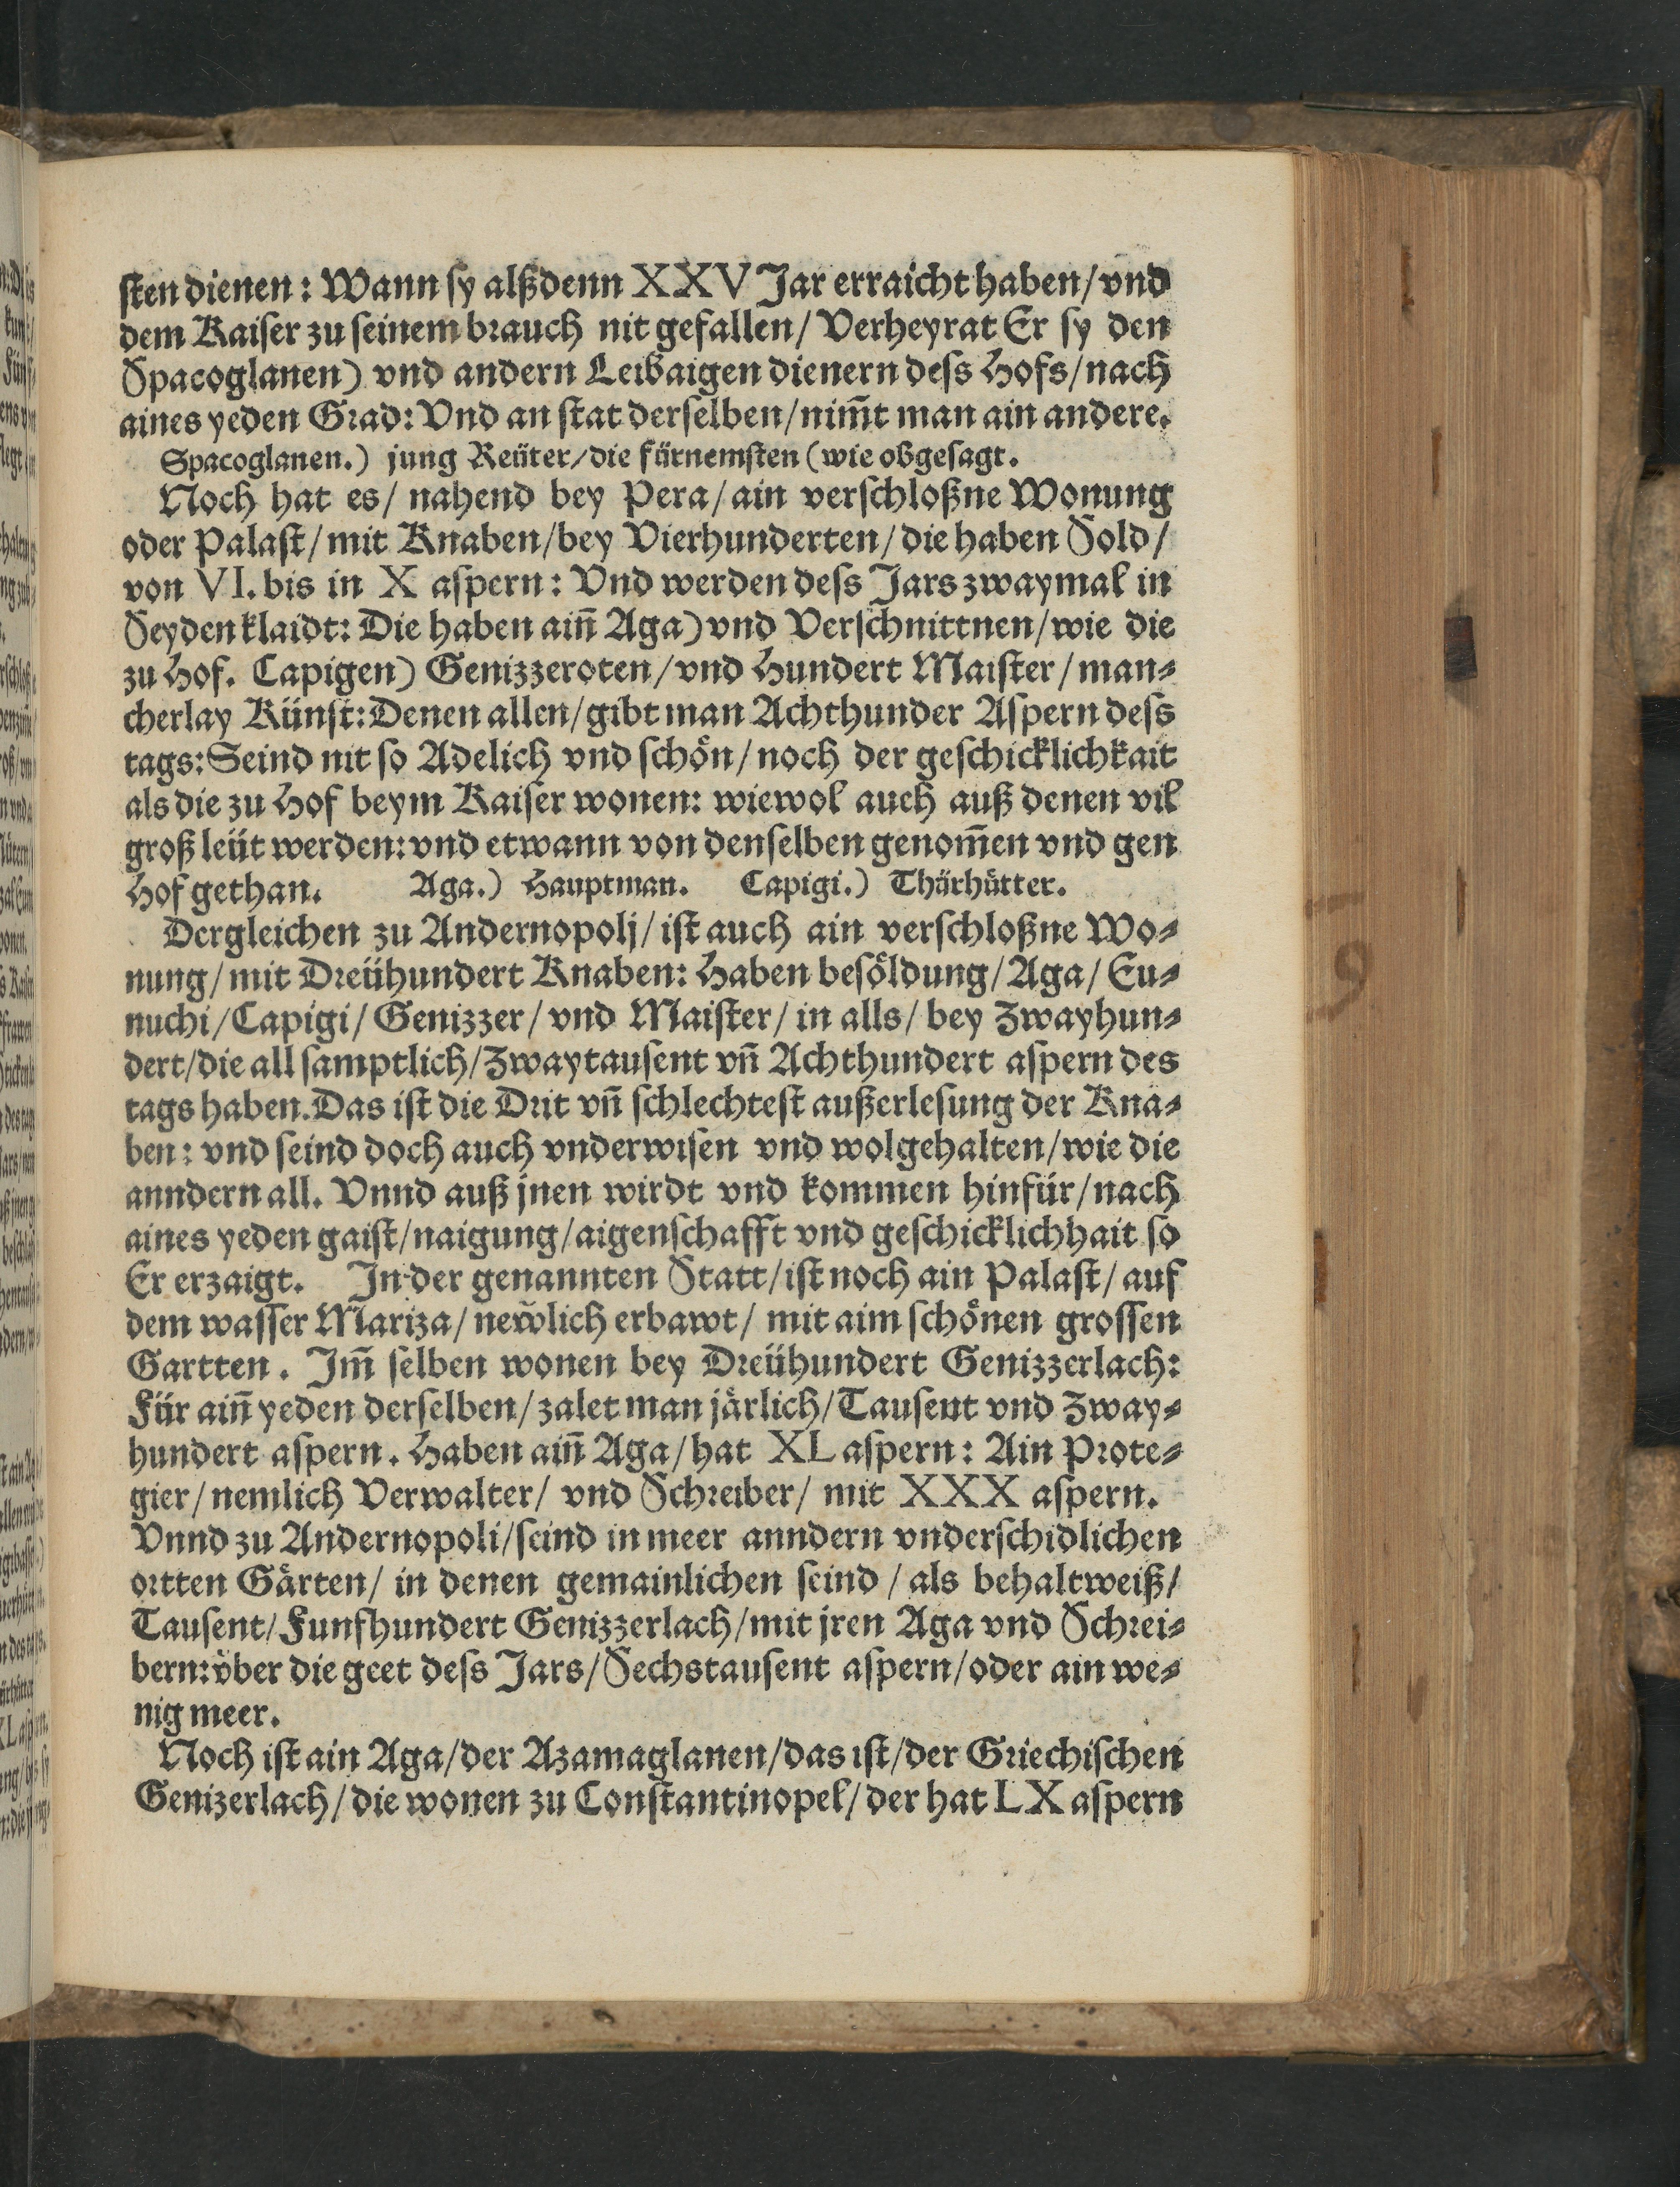 sten dienen: Wann sy alßdenn XXV Jar erraicht haben/ vnd
dem Kaiser zu seinem brauch nit gefallen/ Verheyrat Er sy den
Spacoglanen) vnd andern Leibaigen dienern dess Hofs/ nach
aines yeden Grad: Vnd an stat derselben/ nim̃t man ain andere.
Spacoglanen.) jung Reüter/ die fürnemsten (wie obgesagt.
Noch hat es/ nahend bey Pera/ ain verschloßne Wonung
oder Palast/ mit Knaben/ bey Vierhunderten/ die haben Sold/
von VI. bis in X aspern: Vnd werden dess Jars zwaymal in
Seyden klaidt: Die haben ain̄ Aga) vnd Verschnittnen/ wie die
zu Hof. Capigen) Genizzeroten/ vnd Hundert Maister/ man⸗
cherlay Künst: Denen allen/ gibt man Achthunder Aspern dess
tags: Seind nit so Adelich vnd schön/ noch der geschicklichkait
als die zu Hof beym Kaiser wonen: wiewol auch auß denen vil
groß leüt werden: vnd etwann von denselben genom̄en vnd gen
Hof gethan. Aga.) Hauptman. Capigi.) Thürhütter.
Dergleichen zu Andernopolj/ ist auch ain verschloßne Wo⸗
nung/ mit Dreühundert Knaben: Haben besöldung/ Aga/ Eu⸗
nuchi/ Capigi/ Genizzer/ vnd Maister/ in alls/ bey Zwayhun⸗
dert/ die all samptlich/ Zwaytausent vn̄ Achthundert aspern des
tags haben. Das ist die Drit vn̄ schlechtest außerlesung der Kna⸗
ben: vnd seind doch auch vnderwisen vnd wolgehalten/ wie die
anndern all. Vnnd auß jnen wirdt vnd kommen hinfür/ nach
aines yeden gaist/ naigung/ aigenschafft vnd geschicklichhait so
Er erzaigt. In der genannten Statt/ ist noch ain Palast/ auf
dem wasser Mariza/ newlich erbawt/ mit aim schönen grossen
Gartten. Im̄ selben wonen bey Dreühundert Genizzerlach:
Für ain̄ yeden derselben/ zalet man järlich/ Tausent vnd Zway⸗
hundert aspern. Haben ain̄ Aga/ hat XL aspern: Ain Prote⸗
gier/ nemlich Verwalter/ vnd Schreiber/ mit XXX aspern.
Vnnd zu Andernopoli/ seind in meer anndern vnderschidlichen
ortten Gärten/ in denen gemainlichen seind/ als behaltweiß/
Tausent/ Funfhundert Genizzerlach/ mit jren Aga vnd Schrei⸗
bern: vber die geet dess Jars/ Sechstausent aspern/ oder ain we⸗
nig meer.
Noch ist ain Aga/ der Azamaglanen/ das ist/ der Griechischen
Genizerlach/ die wonen zu Constantinopel/ der hat LX aspern